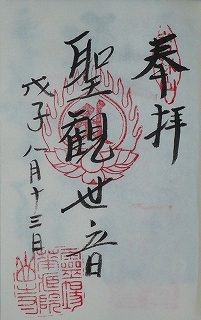 奉拝
聖観世音
戊子八月十三日